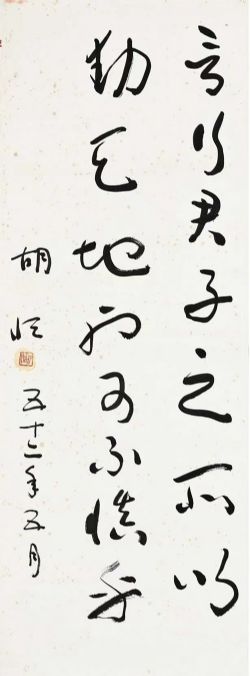 言行君子之所以
動天地也可不慎乎
胡
五十二年五月